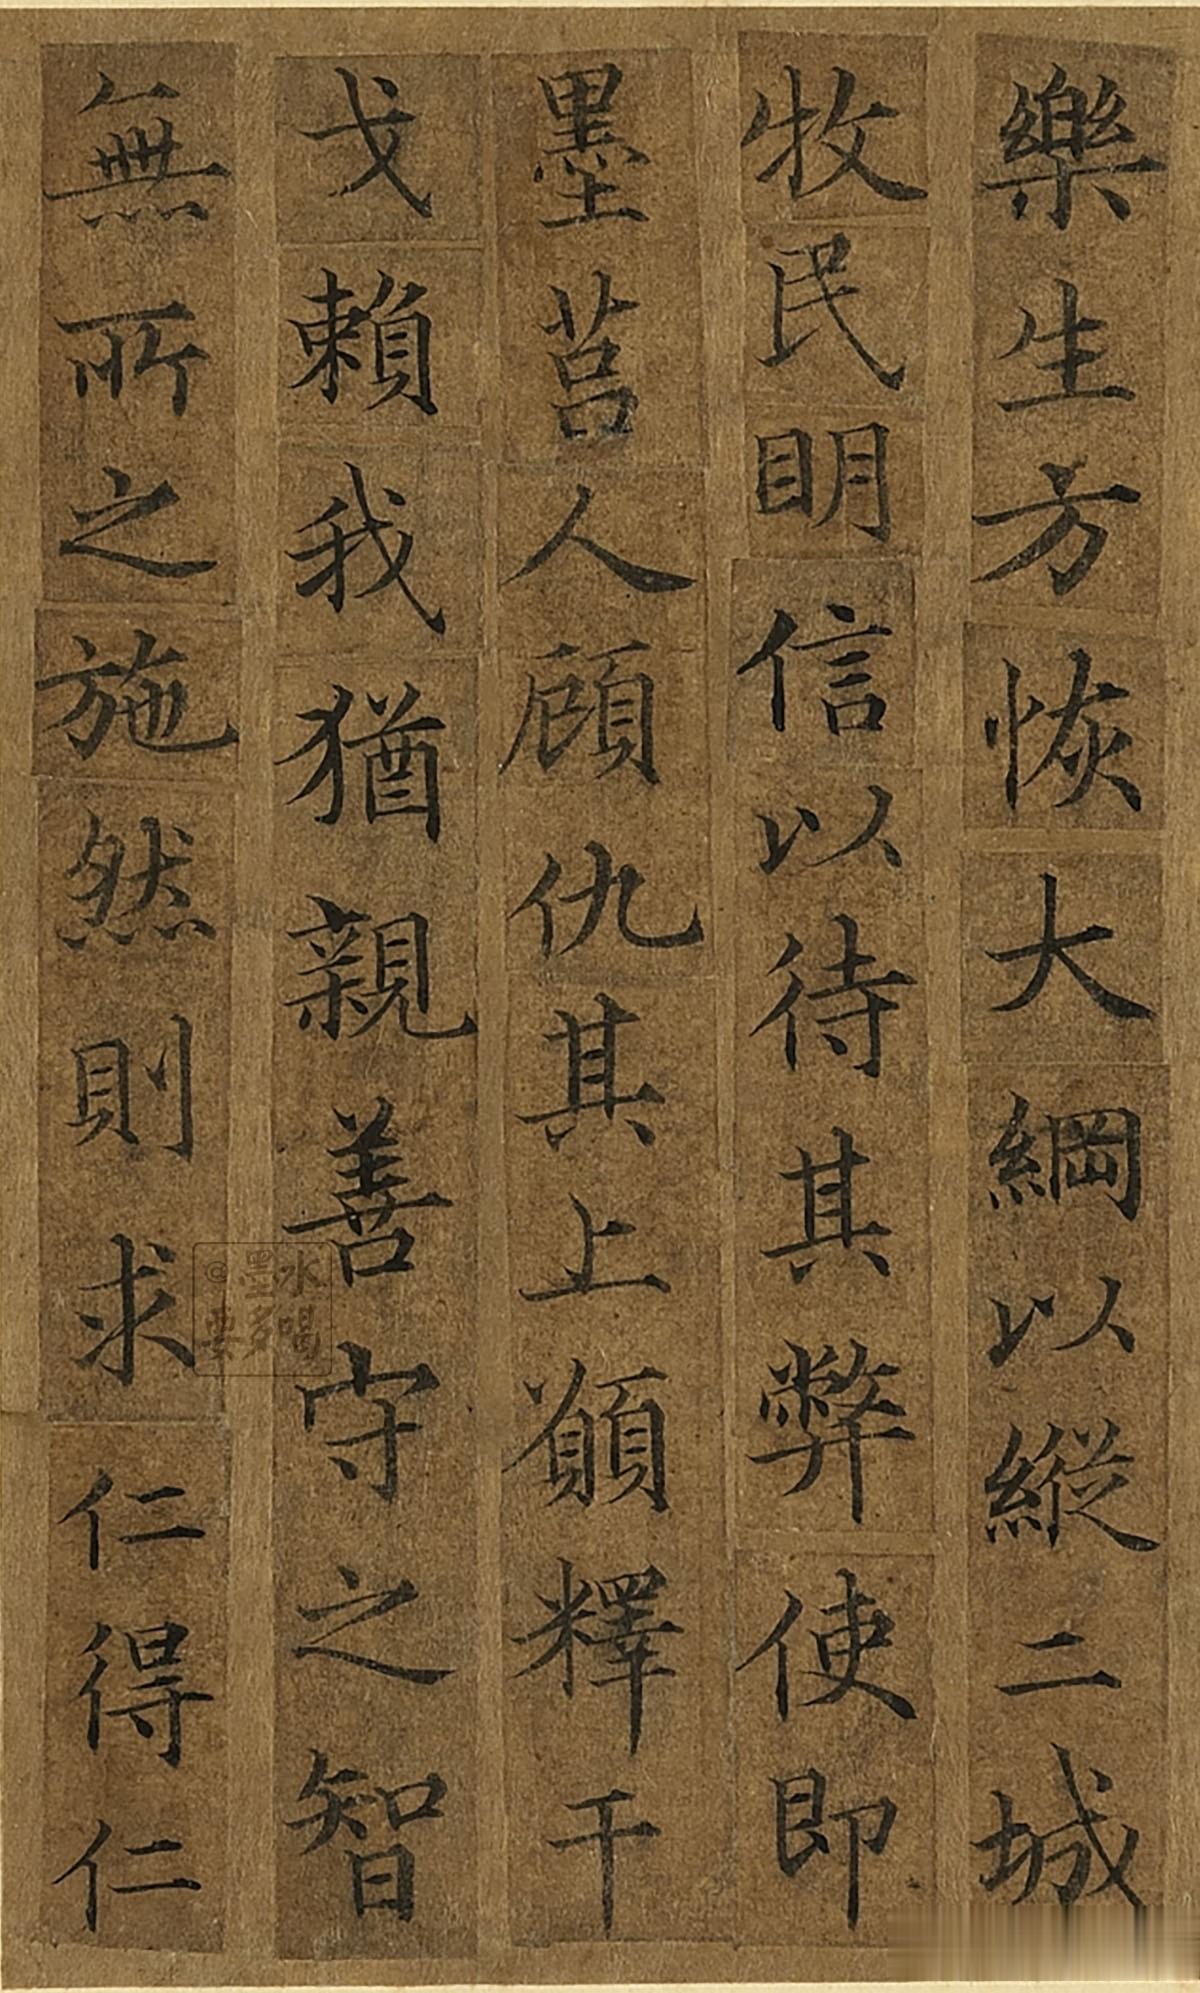 樂生方恢大綱以縱二城
牧民明信以待其弊使即
墨莒人顧仇其上願釋干
戈賴我猶親善守之智
無所之施然則求仁得仁
©墨水
要多喝